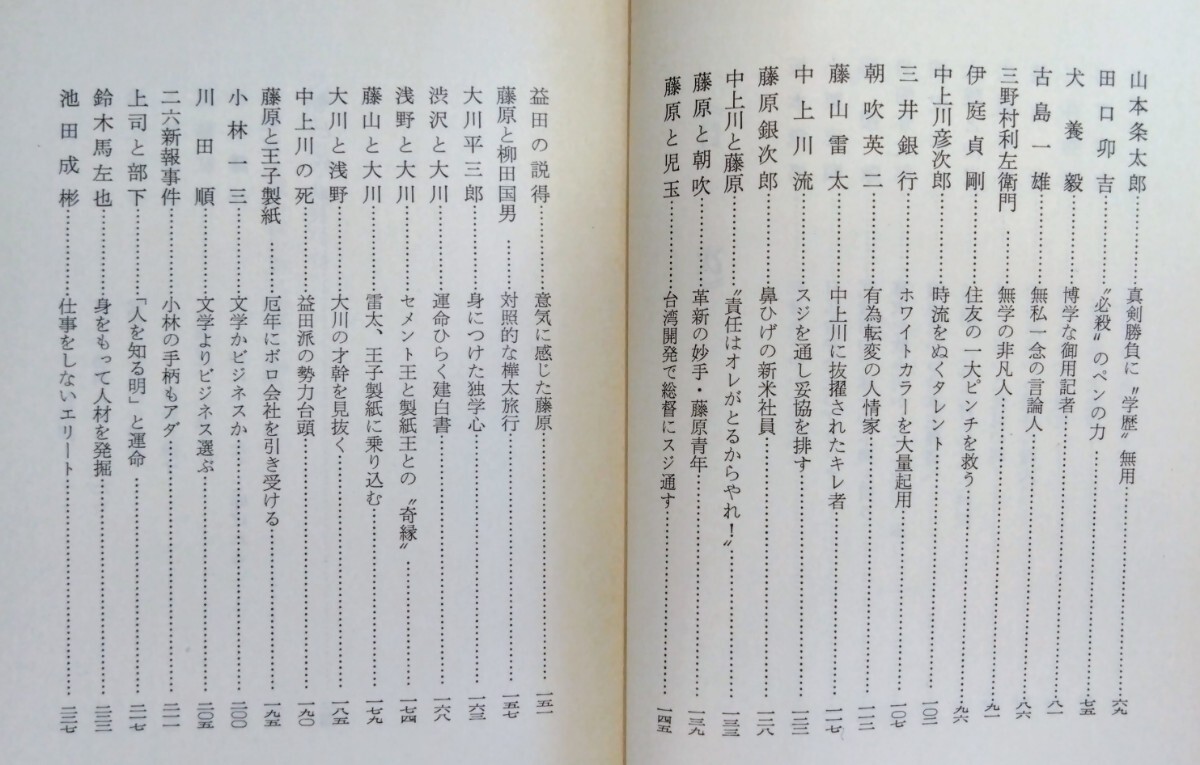 山本条太郎……真剣勝負に〝学歴〟無用……六九
田口卯吉……〝必殺〟のペンの力……七五
犬養毅……博学な御用記者……八一
古島一雄……無私一念の言論人……八六
三野村利左衛門……無学の非凡人……九一
伊庭貞剛……住友の一大ピンチを救う……九六
中上川彦次郎……時流をぬくタレント……一〇二
三井銀行……ホワイトカラーを大量起用……一〇七
朝吹英二……有為転変の人情家……一一二
藤山雷太……中上川に抜擢されたキレ者……一一七
中上川流……スジを通し妥協を排す……一二二
藤原銀次郎……鼻ひげの新米社員……一二八
中上川と藤原……〝責任はオレがとるからやれ!〟……一三三
藤原と朝吹……革新の妙手・藤原青年……一三九
藤原と児玉……台湾開発で総督にスジ通す……一四五
益田の説得……意気に感じた藤原……一五一
藤原と柳田国男……対照的な樺太旅行……一五七
大川平三郎……身につけた独学心……一六三
渋沢と大川……運命ひらく建白書……一六八
浅野と大川……セメント王と製紙王との〝奇縁〟……一七四
藤山と大川……雷太、王子製紙に乗り込む……一七九
大川と浅野……大川の才幹を見抜く……一八五
中上川の死……益田派の勢力台頭……一九〇
藤原と王子製紙……厄年にボロ会社を引き受ける……一九五
小林一三……文学かビジネスか……二〇〇
川田順……文学よりビジネス選ぶ……二〇五
二六新報事件……小林の手柄もアダ……二一一
上司と部下……「人を知る明」と運命……二一七
鈴木馬左也……身をもって人材を発掘……二二二
池田成彬……仕事をしないエリート……二二七